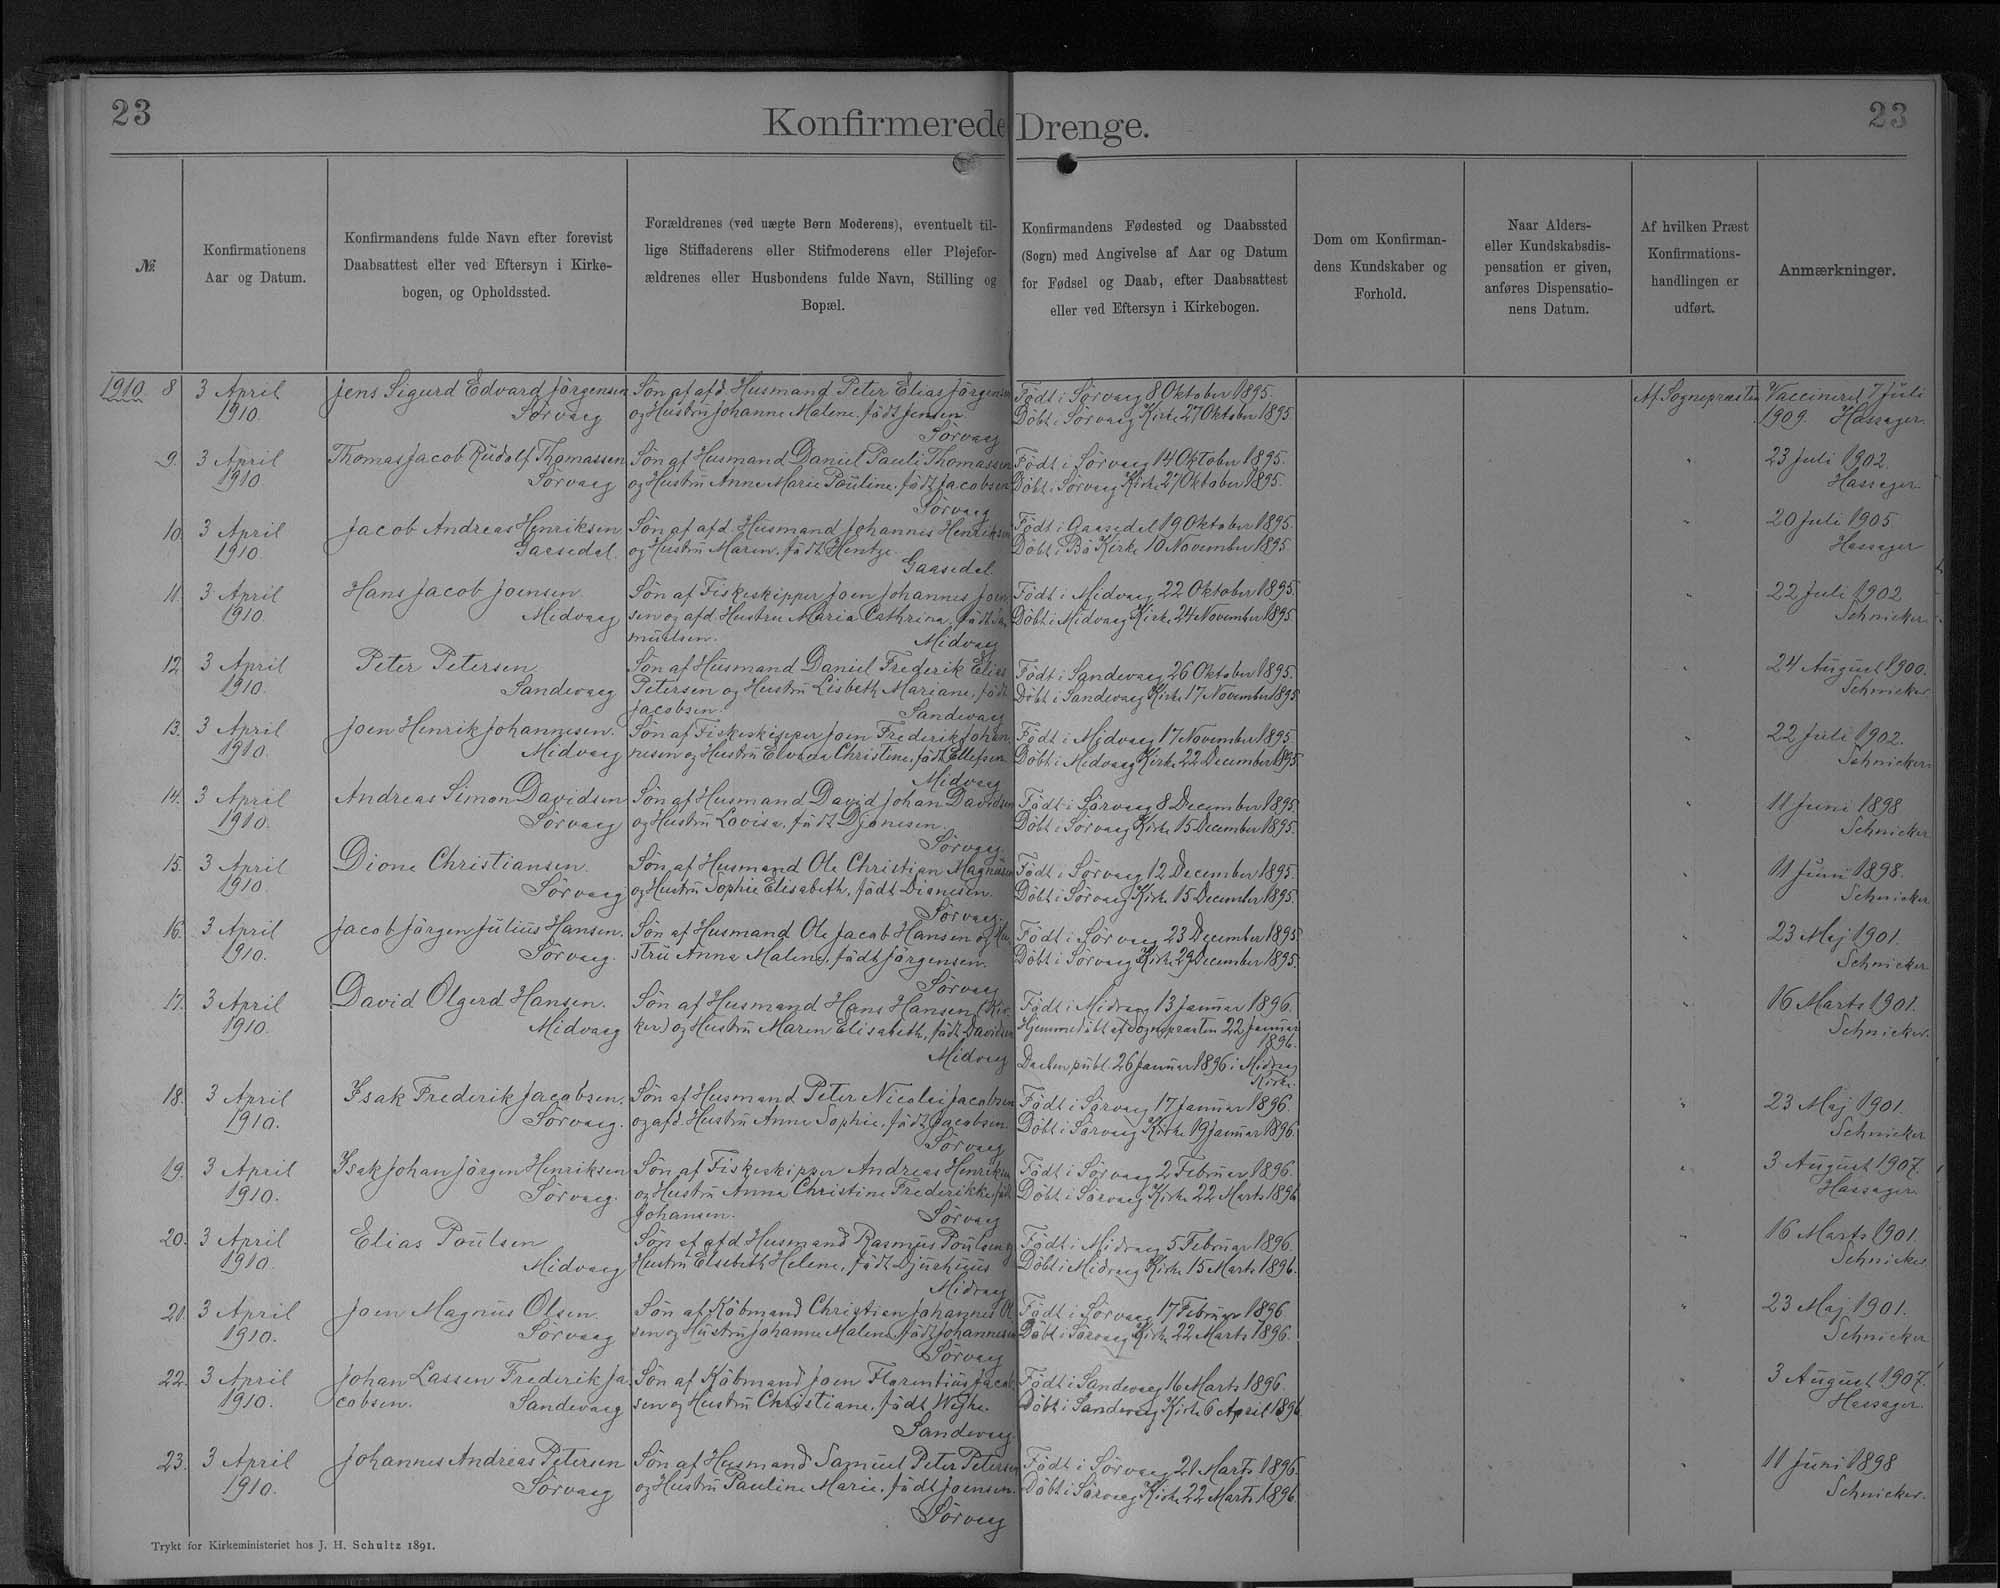 23
Konfirmerede Drenge.
23
№
Konfirmationens
Aar og Datum.
Konfirmandens fulde Navn efter forevist
Daabsattest eller ved Eftersyn i Kirke-
bogen, og Opholdssted.
Forældrenes (ved uægte Børn Moderens), eventuelt til-
lige Stiffaderens eller Stifmoderens eller Plejefor-
ældrenes eller Husbondens fulde Navn, Stilling og
Bopæl.
Konfirmandens Fødested og Daabssted
(Sogn) med Angivelse af Aar og Datum
for Fødsel og Daab, efter Daabsattest
eller ved Eftersyn i Kirkebogen.
Dom om Konfirman-
dens Kundskaber og
Forhold.
Naar Alders-
eller Kundskabsdis-
pensation er given,
anføres Dispensatio-
nens Datum.
Af hvilken Præst
Konfirmations-
handlingen er
udført.
Anmærkninger.
1910. 8 3 April
1910.
Jens Sigurd Edvard Jörgensen
Sörvaag
Sön af afd. Husmand Peter Elias Jörgensen
og Hustrü Johanne Malene, född Jensen
Sörvaag
Födt i Sörvaag 8 Oktober 1895.
Döbt i Sörvaag Kirke 27 Oktober 1895
Af Sognepræsten
Vaccineret 7 Juli
1909. Hassager.
9. 3 April
1910
Thomas Jacob Rüdolf Thomassen
Sörvaag
Sön af Husmand Daniel Pauli Thomassen
og Hustrü Anne Marie Pauline, födt Jacobsen
Sörvaag
Födt i Sörvaag 14 Oktober 1895.
Döbt i Sörvaag Kirke 27 Oktober 1895.
"
23 Juli 1902.
Hassager
10. 3 April
1910.
Jacob Andreas Henriksen
Gaasedal.
Sön af afd. Husmand Johannes Henriksen
og Hustrü Maren, födt Hentze.
Gaasedal.
Födt i Gaasedal 19 Oktober 1895.
Döbt i Bö Kirke 10 November 1895
"
20 Juli 1905.
Hassager
11. 3 April
1910.
Hans Jacob Joensen
Midvaag
Sön af Fiskeskipper Joen Johannes Joen-
sen og afd. Hustru Maria Cathrina, födt Sa-
muelsen.
Midvaag
Födt i Midvaag 22 Oktober 1895.
Döbt i Midvaag Kirke 24 November 1895
"
22 Juli 1902
Schnicker.
12 3 April
1910.
Peter Petersen
Sandevaag
Sön af Husmand Daniel Frederik Elias
Petersen og Hustrü Lisbeth Mariane, födt
Jacobsen.
Sandevaag
Födt i Sandevaag 26 Oktober 1895.
Döbt i Sandevaag Kirke 17 November 1895
"
24 August 1900.
Schnicker
13. 3 April
1910.
Joen Henrik Johannesen.
Midvaag
Sön af Fiskeskipper Joen Frederik Johan-
nesen og Hustrü Christine, födt Ellefsen
Midvaag
Födt i Midvaag 17 November 1895
Döbt i Midvaag Kirke 22 December 1895
"
22 Juli 1902.
Schnicker
14. 3 April
1910.
Andreas Simon Davidsen
Sörvaag
Sön af Husmand David Johan Davidsen
og Hustrü Lovisa, födt Djonesen.
Sörvaag.
Födt i Sörvaag 8 December 1895
Döbt i Sörvaag Kirke 15 December 1895.
"
11 Juni 1898
Schnicker
15. 3 April
1910.
Dione Christiansen.
Sörvaag
Sön af Husmand Ole Christian Magnüsen
og Hustrü Sophie Elisabeth, födt Dionesen.
Sörvaag.
Födt i Sörvaag 12 December 1895.
Döbt i Sörvaag Kirke 15 December 1895.
"
11 Juni 1898.
Schnicker
16. 3 April
1910.
Jacob Jörgen Jülius Hansen.
Sörvaag.
Sön af Husmand Ole Jacob Hansen og Hu-
strü Anna Malene, födt Jörgensen.
Sörvaag
Födt i Sörvaag 23 December 1895
Döbt i Sörvaag Kirke 29 December 1895.
"
23 Maj 1901.
Schnicker
17. 3 April
1910.
David Olgerd Hansen.
Midvaag
Sön af Husmand Hans Hansen (Kir-
ker) og Hustrü Maren Elisabeth, födt Davidsen
Midvaag
Födt i Midvaag 13 Januar 1896.
Hjemmedöbt af Sognepræsten 22 Januar
1896.
Daaben publ. 26 Januar 1896 i Midvaag
Kirke.
"
16 Marts 1901.
Schnicker.
18. 3 April
1910.
Isak Frederik Jacobsen.
Sörvaag.
Sön af Husmand Peter Nicolai Jacobsen
og afd. Hustrü Anne Sophie, födt Jacobsen.
Sörvaag
Födt i Sörvaag 17 Januar 1896.
Döbt i Sörvaag Kirke 19 Januar 1896.
"
23 Maj 1901.
Schnicker
19. 3 April
1910.
Isak Johan Jörgen Henriksen
Sörvaag.
Sön af Fiskeskipper Andreas Henriksen
og Hustrü Anna Christine Frederikke, födt
Johansen.
Sörvaag
Födt i Sörvaag 2 Februar 1896.
Döbt i Sörvaag Kirke 22 Marts 1896
"
3 August 1907.
Hassager
20. 3 April
1910.
Elias Poülsen
Midvaag
Sön af afd Husmand Rasmus Poülsen og
Hustrü Elsebeth Helene, födt Djurhuus
Midvaag
Födt i Midvaag 5 Februar 1896.
Döbt i Midvaag Kirke 15 Marts 1896.
"
16 Marts 1901.
Schnicker.
21. 3 April
1910.
Joen Magnüs Olsen.
Sörvaag
Sön af Köbmand Christian Johannes Ol-
sen og Hustrü Johanne Malene, födt Johannesen
Sörvaag
Födt i Sörvaag 17 Februar 1896.
Döbt i Sörvaag Kirke 22 Marts 1896.
"
23 Maj 1901.
Schnicker
22. 3 April
1910.
Johan Lassen Frederik Ja-
cobsen.
Sandevaag
Sön af Köbmand Joen Florentius Jacob-
sen og Hustrü Christiane, födt Weyhe.
Sandevaag.
Födt i Sandevaag 16 Marts 1896.
Döbt i Sandevaag Kirke 6 April 1896.
"
3 August 1907.
Hassager.
23. 3 April
1910.
Johannes Andreas Petersen
Sörvaag
Sön af Husmand Samüel Peter Petersen
og Hustrü Pauline Marie, födt Joensen.
Sörvaag
Födt i Sörvaag 21 Marts 1896.
Döbt i Sörvaag Kirke 22 Marts 1896.
"
11 Juni 1898
Schnicker.
Trykt for Kirkeministeriet hos J. H. Schultz 1891.